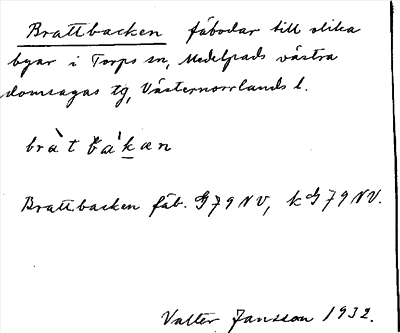 Brattbacken fäbodar till olika
byar i Torps sn, Medelpads västra
domsagas tg, Västernorrlands l.
Brattbacken fäb. G79NV, kG79NV.
Valter Jansson 1932.